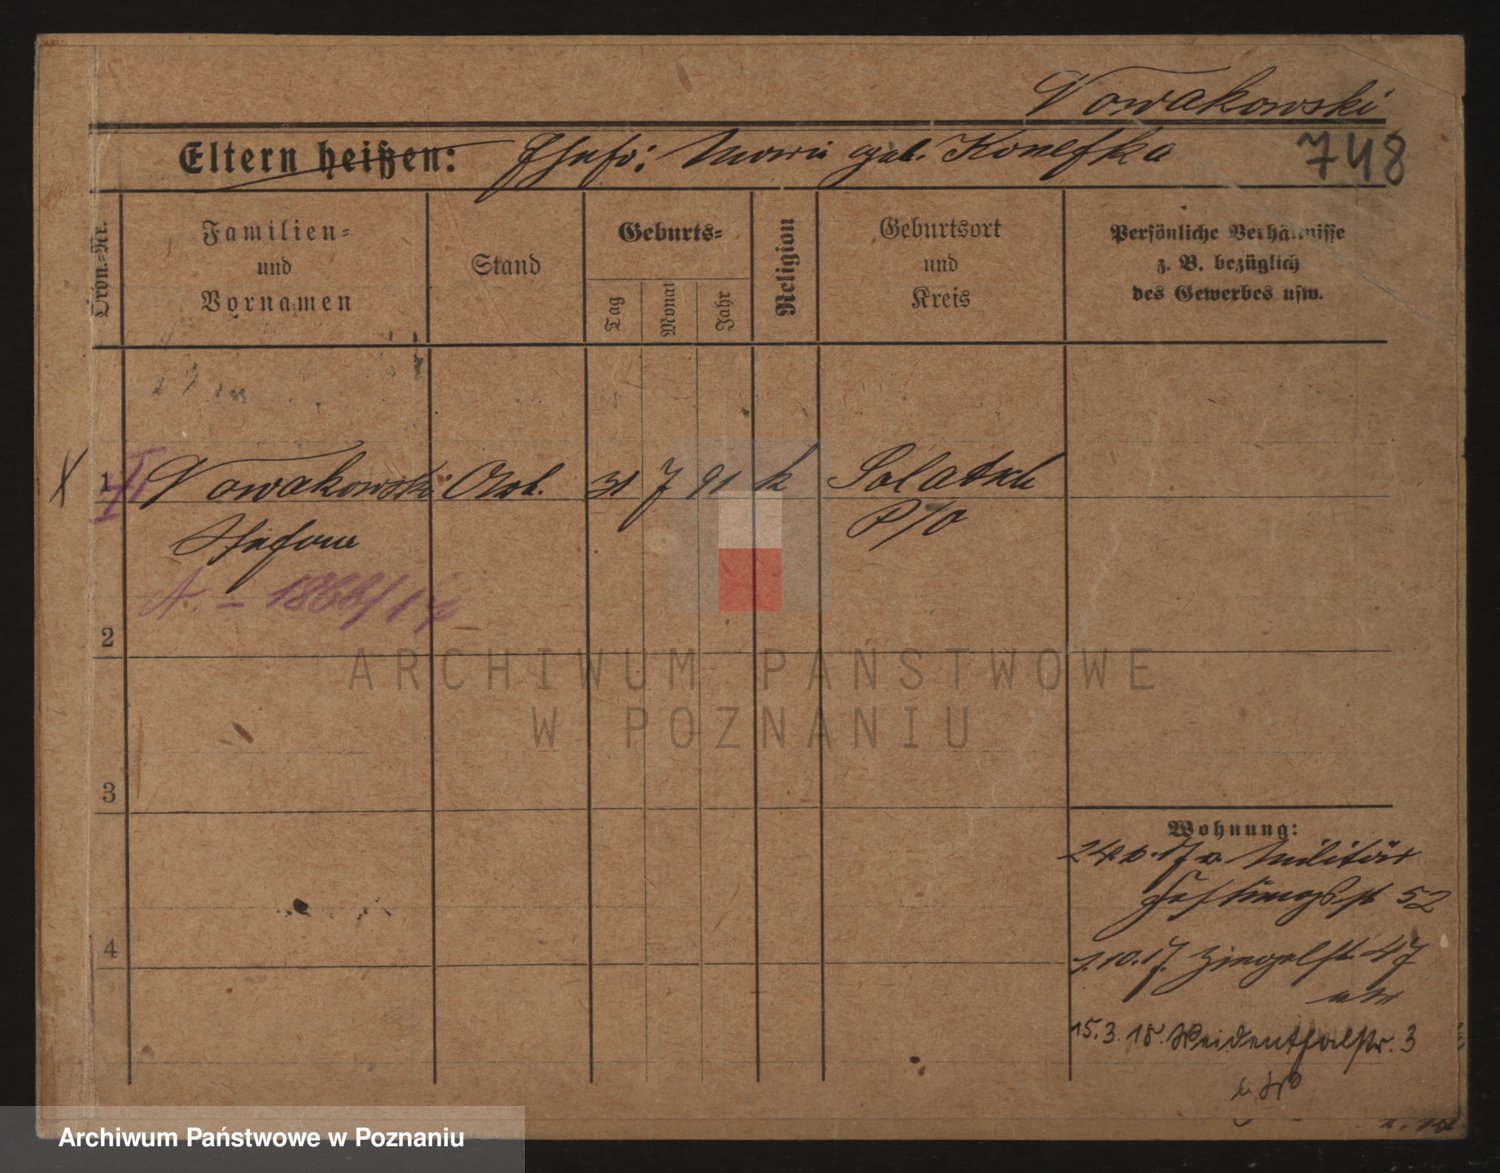 Nowakowski
Eltern heißen: Ehefr: Marie geb. Konefka
748
Ordn.-Nr.
Familien-
und
Vornamen
Stand
Geburts-
Tag
Monat
Jahr
Religion
Geburtsort
und
Kreis
Persönliche Verhältnisse
z. B. bezüglich
des Gewerbes usw.
X 1 Nowakowski Arb. 31 7 91 k Solatsch
P/O
Stefan
A. -
2
3
4
Wohnung:
24. 17 v. Militär
Festungsst 52
1.10.17. Ziegelst. 47
15.3.18. Weidenthalstr. 3
ARCHIWUM PAŃSTWOWE
W POZNANIU
Archiwum Państwowe w Poznaniu